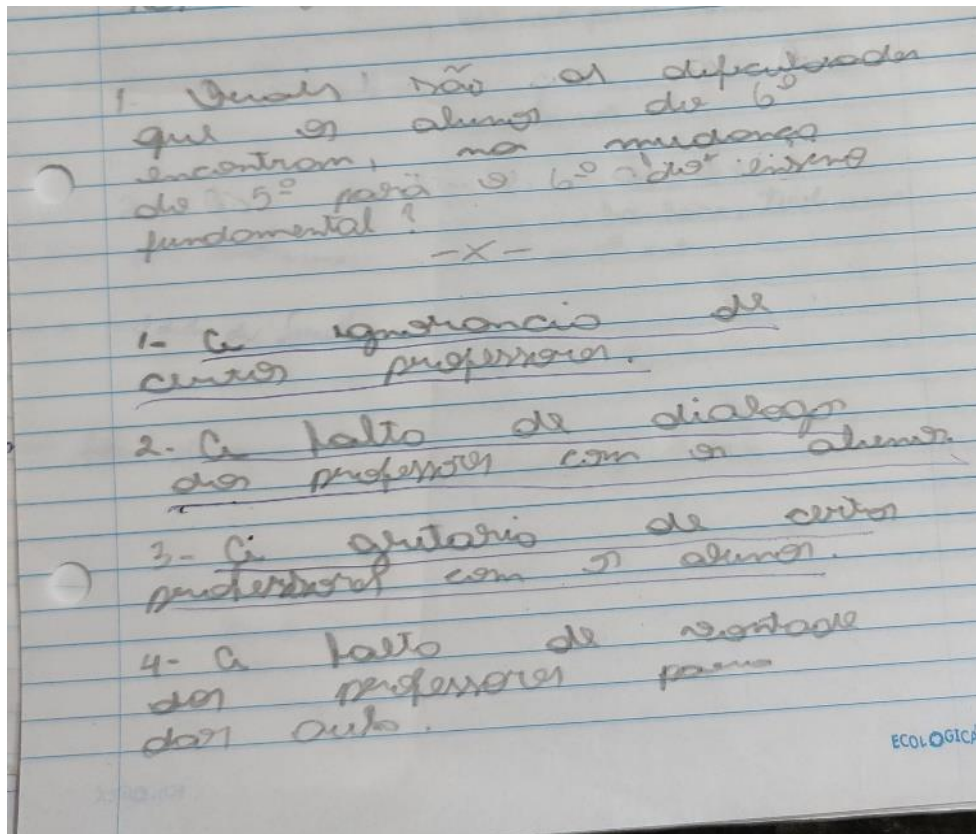 1 Quais são as dificuldades
que os alunos do 6º
encontram, na mudança
do 5º para o 6º do ensino
fundamental?
-x-
1- A ignorancia de
certos professores.
2- A falta de dialogo
dos professores com os alunos.
3- A gritaria de certos
professores com os alunos.
4- A falta de vontade
dos professores para
dar aula.
ECOLOGICA